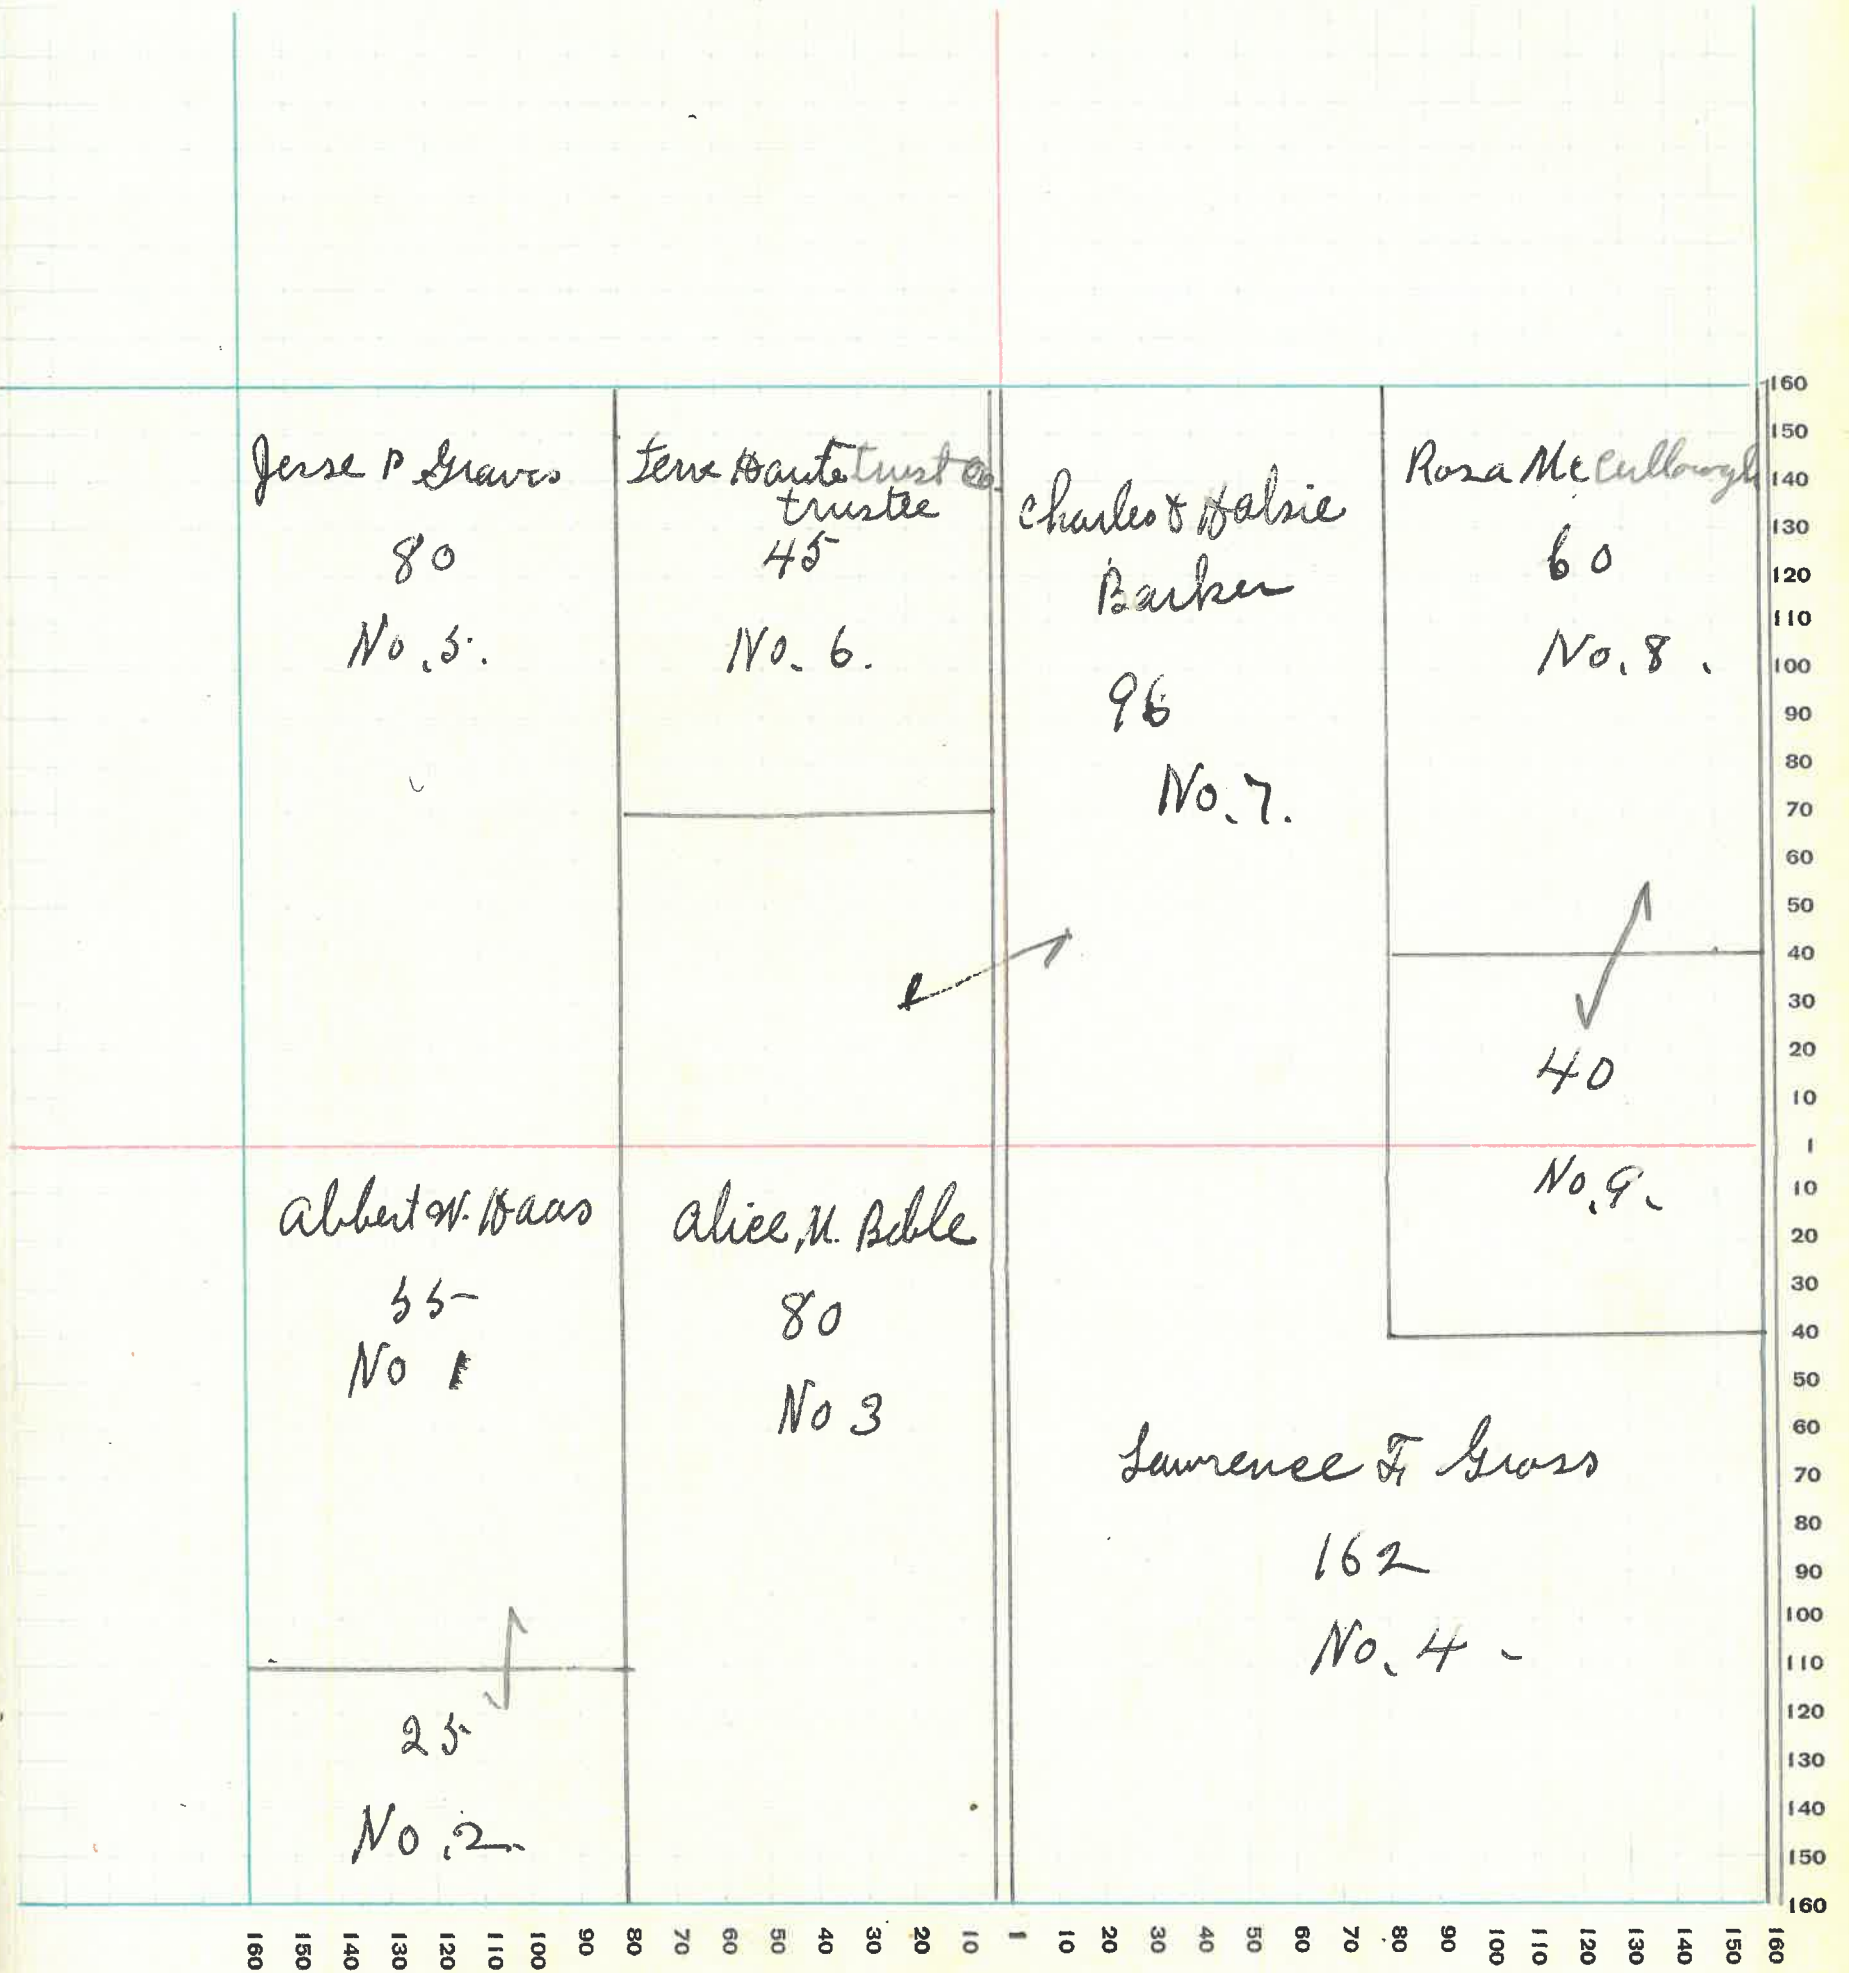 Jesse P Graves
80
No. 5.
Terre Haute trust Co.
trustee
45
No. 6.
Charles & Halsie
Barker
96
No. 7.
Rosa McCullough
60
No. 8.
40
No. 9.
Albert W. Haas
55
No 1
25
No. 2
Alice, M. Bible
80
No 3
Lawrence F. Gross
162
No. 4
160
150
140
130
120
110
100
90
80
70
60
50
40
30
20
10
1
10
20
30
40
50
60
70
80
90
100
110
120
130
140
150
160
160 150 140 130 120 110 100 90 80 70 60 50 40 30 20 10 1 10 20 30 40 50 60 70 80 90 100 110 120 130 140 150 160